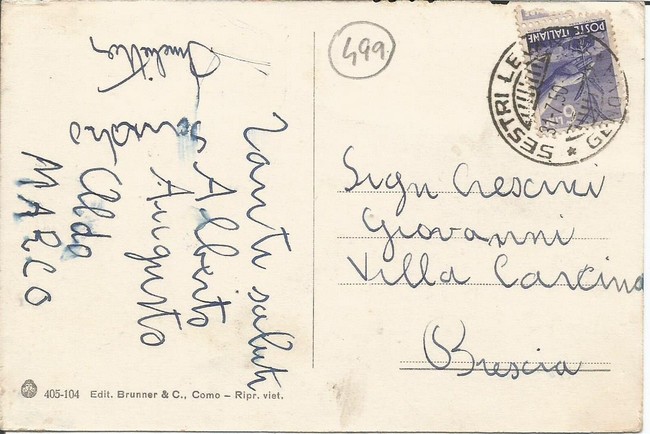 Tanti saluti
Alberto
Augusto
Aldo
MARCO
499
POSTE ITALIANE
SESTRI LE
GE
Sign Crescini
Giovanni
Villa Carcina
Brescia
405-104 Edit. Brunner & C., Como – Ripr. viet.